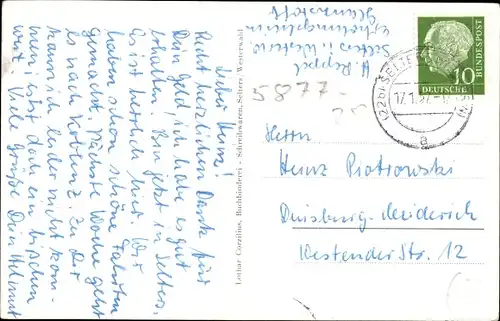 Lieber Heinz!
Recht herzlichen Dank für
Dein Geld, ich habe es gut
erhalten. Bin jetzt in Selters,
Es ist herrlich hier. Wir
haben schon schöne Fahrten
gemacht. Nächste Woche geht
es nach Koblenz. Zu Dir
kann ich leider nicht kom-
men, ist doch ein bischen
weit. Viele Grüße Dein Helmut
H. Reppel
Selters i. Westerw
Erholungsheim
Glanzstoff
Lothar Corzilius, Buchbinderei - Schreibwaren, Selters / Westerwald
5877
25
(22b) SELTE
17.1.57
a
10
DEUTSCHE
BUNDESPOST
Herrn
Heinz Piotrowski
Duisburg-Meiderich
Westender Str. 12